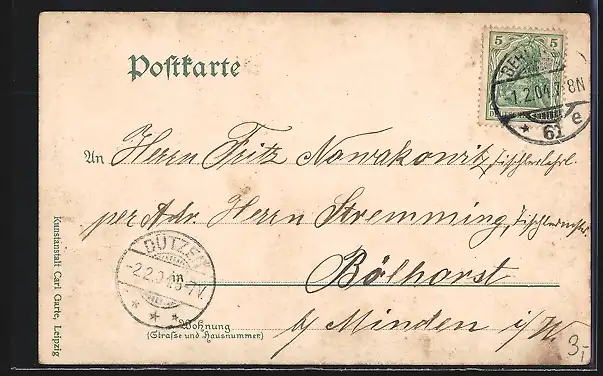 Postkarte
5 5
BERLIN
1.2.04. 7-8N
* 61 e
An Herrn Fritz Nowakowitz, Tischlerlehrl.
per Adr. Herrn Stremming, Tischlermstr.
DÜTZEN
2.2.04 6-7V.
* * *
in Bölhorst
Wohnung
(Straße und Hausnummer)
b/ Minden i/W.
3,-
Kunstanstalt Carl Garte, Leipzig